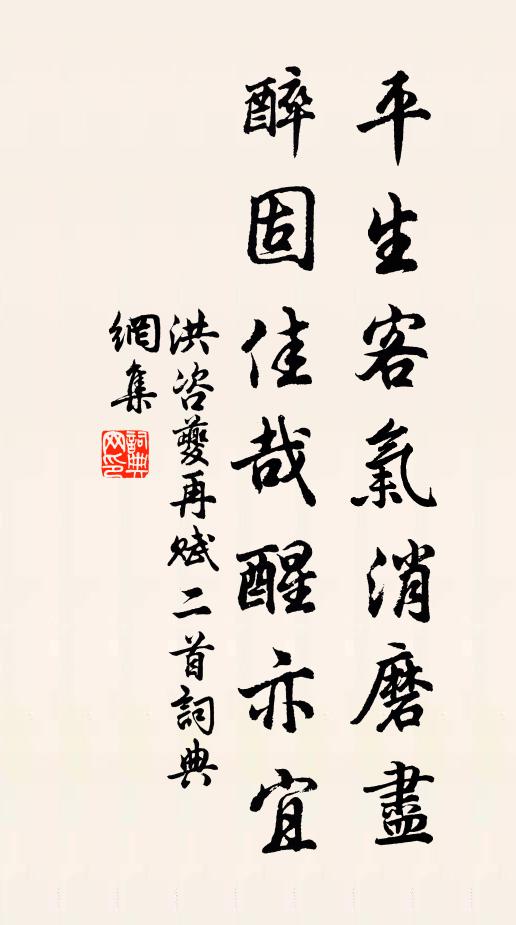 平生客氣消磨盡
醉固佳哉醒亦宜
洪咨夔再賦二首詞典
網集
詞典網印